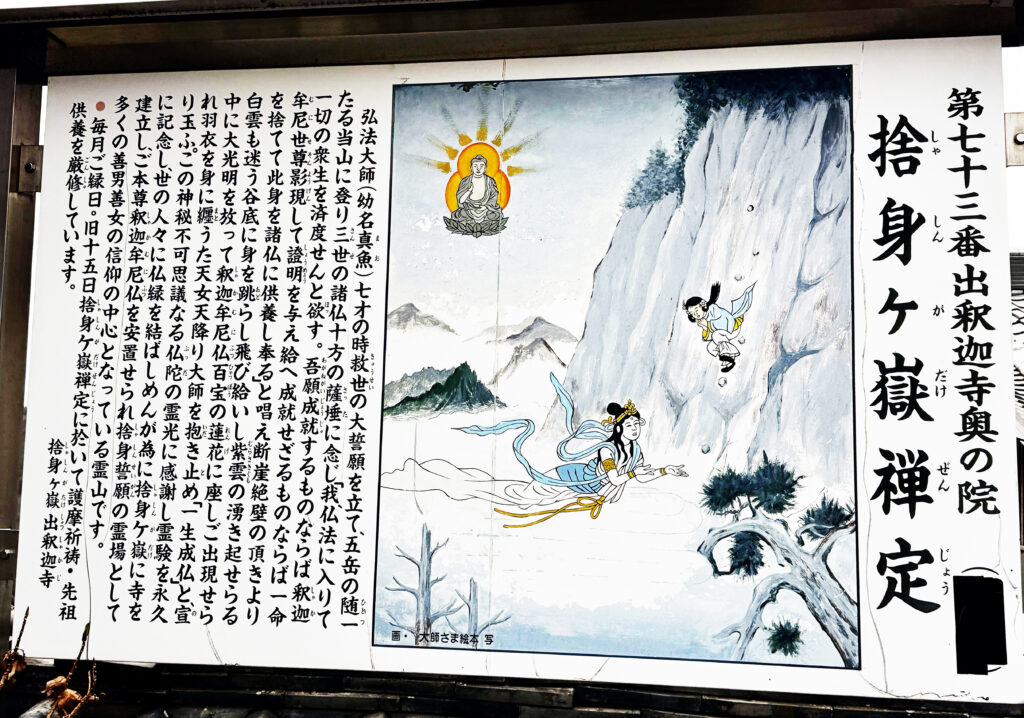 第七十三番出釈迦寺奥の院
捨身ヶ嶽禅定
しゃしんがだけぜんじょう
弘法大師(幼名真魚)七才の時救世の大誓願を立て五岳の随一
たる当山に登り三世の諸仏十方の薩埵に念じ「我仏法に入りて
一切の衆生を済度せんと欲す。吾願成就するものならば釈迦
牟尼世尊影現して證明を与え給へ成就せざるものならば一命
を捨てて此身を諸仏に供養し奉る」と唱え断崖絶壁の頂きより
白雲も迷う谷底に身を跳らし飛び給いし紫雲の湧き起せらるる
中に大光明を放って釈迦牟尼仏百宝の蓮花に座しご出現せら
れ羽衣を身に纏うた天女天降り大師を抱き止め「一生成仏」と宣
り玉ふ。この神秘不可思議なる仏陀の霊光に感謝し霊験を永久
に記念し世の人々に仏縁を結ばしめんが為に捨身ヶ嶽に寺を
建立し、ご本尊釈迦牟尼仏を安置せられ捨身誓願の霊場として
多くの善男善女の信仰の中心となっている霊山です。
●毎月ご縁日。旧十五日捨身ヶ嶽禅定に於いて護摩祈祷・先祖
供養を厳修しています。
捨身ヶ嶽 出釈迦寺
画・ 大師さま絵本 写